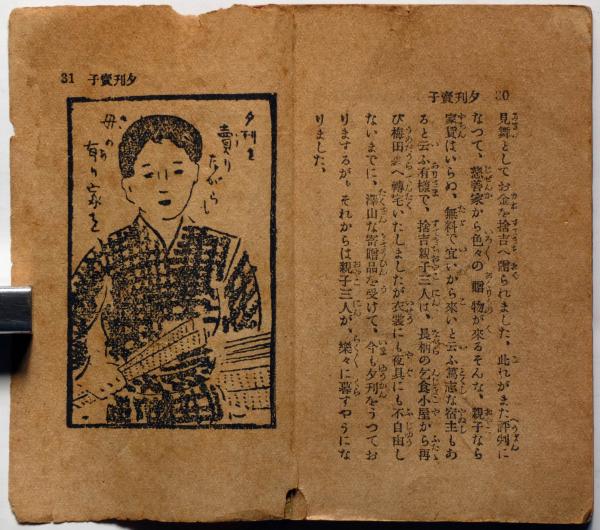 夕刊賣子 30
見舞としてお金を捨吉へ贈られました、此れがまた評判に
なつて、慈善家から色々の贈物が來るそんな、親子なら
家賃はいらぬ、無料で宜いから來いと云ふ篤志な宿主もあ
ると云ふ有樣で、捨吉親子三人は、長柄の乞食小屋から再
び梅田へ轉宅いたしましたが衣裳にも夜具にも不自由し
ないまでに、澤山な寄贈品を受けて、今も夕刊をうつてお
りまするが、それからは親子三人が、樂々に暮すやうにな
りました。
夕刊賣子 31
夕刊を
賣り
ながらし
母の
有り家を